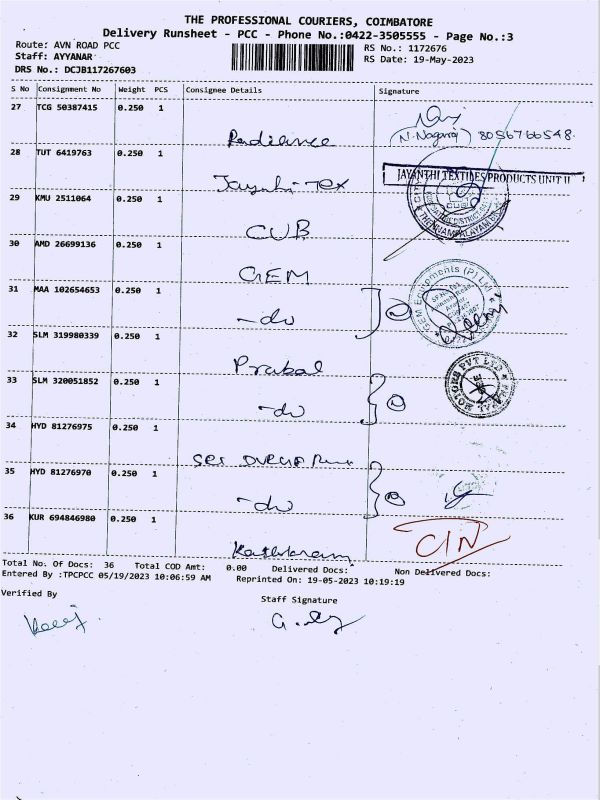 THE PROFESSIONAL COURIERS, COIMBATORE
Delivery Runsheet - PCC - Phone No.:0422-3505555 - Page No.:3
Route: AVN ROAD PCC
RS No.: 1172676
Staff: AYYANAR
RS Date: 19-May-2023
DRS No.: DCJB117267603
S No Consignment No Weight PCS Consignee Details Signature
27 TCG 50387415 0.250 1
Radiance (N. Nagaraj) 8056766548
28 TUT 6419763 0.250 1
Jayanthi Tex JAYANTHI TEXTILES PRODUCTS UNIT II
29 KMU 2511064 0.250 1
CUB
30 AMD 26699136 0.250 1
GEM
31 MAA 102654653 0.250 1
-do 2
32 SLM 319980339 0.250 1
Prabal
33 SLM 320051852 0.250 1
-do 2
34 HYD 81276975 0.250 1
35 HYD 81276970 0.250 1
-do 2
36 KUR 694846980 0.250 1
CIN
Total No. Of Docs: 36 Total COD Amt: 0.00 Delivered Docs: Non Delivered Docs:
Entered By :TPCPCC 05/19/2023 10:06:59 AM Reprinted On: 19-05-2023 10:19:19
Verified By
Staff Signature